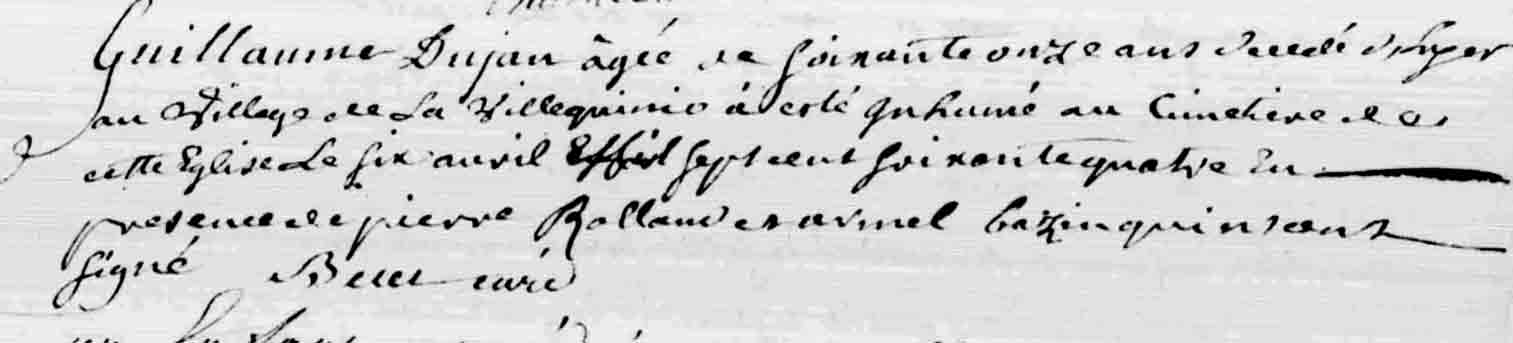 Guillaume Dujan âgée de soixante onze ans decedé d'hyer
au Village de La Villeguinio à esté Inhumé au Cimetiere de
cette Eglise Le six auril sept cent soixante quatre En
presence de pierre Rolland et armel bazin qui n sont
signé curé